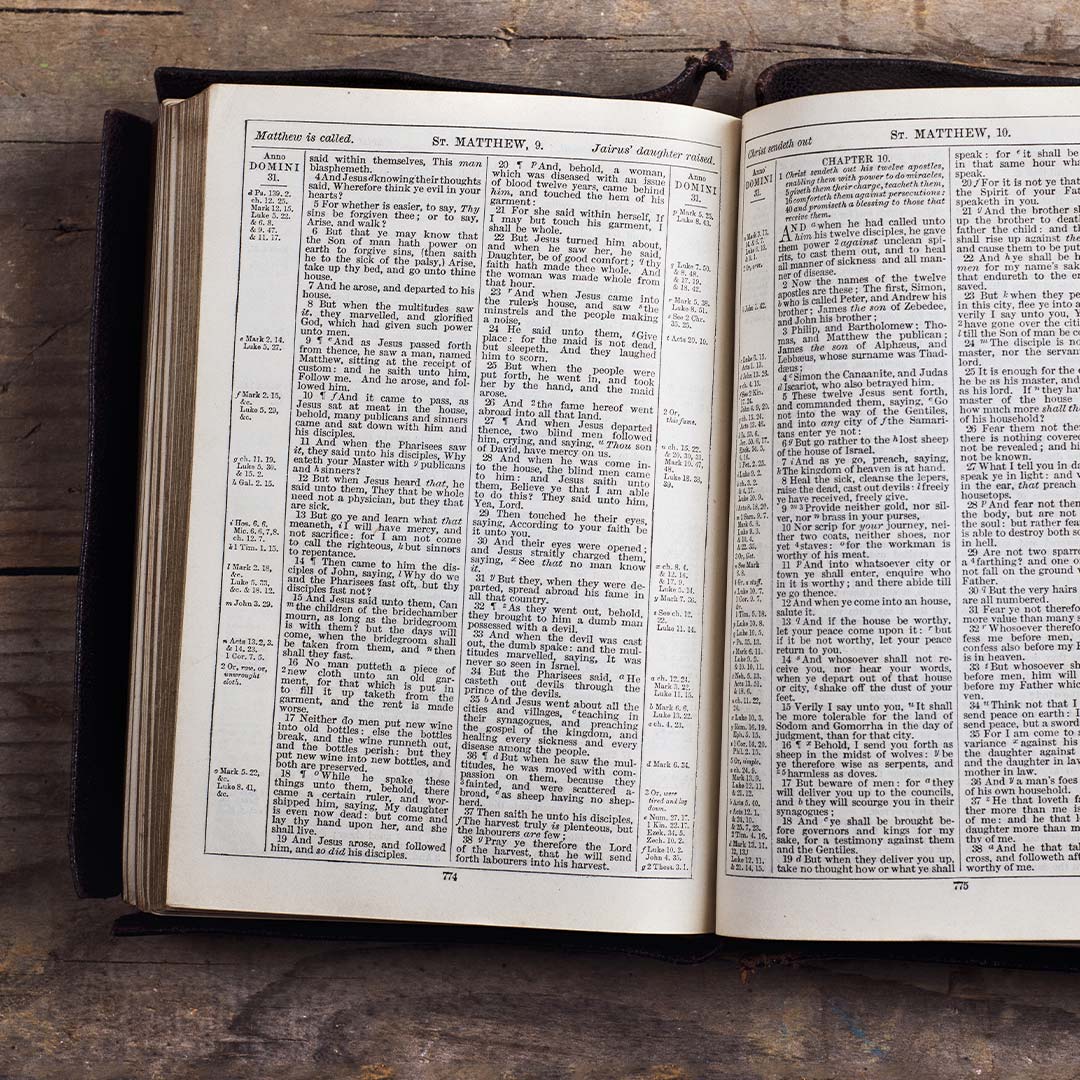 Matthew is called.
ST. MATTHEW, 9.
Jairus' daughter raised.
Anno
DOMINI
31.
d Ps. 139. 2.
ch. 12. 25.
Mark 12. 15.
Luke 5. 22.
& 6. 8.
& 9. 47.
& 11. 17.
e Mark 2. 14.
Luke 5. 27.
f Mark 2. 15,
&c.
Luke 5. 29,
&c.
g ch. 11. 19.
Luke 5. 30.
& 15. 2.
h Gal. 2. 15.
i Hos. 6. 6.
Mic. 6. 6, 7, 8.
ch. 12. 7.
k 1 Tim. 1. 15.
l Mark 2. 18,
&c.
Luke 5. 33,
&c. & 18. 12.
m John 3. 29.
n Acts 13. 2, 3.
& 14. 23.
1 Cor. 7. 5.
2 Or, raw, or,
unwrought
cloth.
o Mark 5. 22,
&c.
Luke 8. 41,
&c.
said within themselves, This man
blasphemeth.
4 And Jesus d knowing their thoughts
said, Wherefore think ye evil in your
hearts?
5 For whether is easier, to say, Thy
sins be forgiven thee; or to say,
Arise, and walk?
6 But that ye may know that
the Son of man hath power on
earth to forgive sins, (then saith
he to the sick of the palsy,) Arise,
take up thy bed, and go unto thine
house.
7 And he arose, and departed to his
house.
8 But when the multitudes saw
it, they marvelled, and glorified
God, which had given such power
unto men.
9 ¶ e And as Jesus passed forth
from thence, he saw a man, named
Matthew, sitting at the receipt of
custom: and he saith unto him,
Follow me. And he arose, and fol-
lowed him.
10 ¶ f And it came to pass, as
Jesus sat at meat in the house,
behold, many publicans and sinners
came and sat down with him and
his disciples.
11 And when the Pharisees saw
it, they said unto his disciples, Why
eateth your Master with g publicans
and h sinners?
12 But when Jesus heard that, he
said unto them, They that be whole
need not a physician, but they that
are sick.
13 But go ye and learn what that
meaneth, i I will have mercy, and
not sacrifice: for I am not come
to call the righteous, k but sinners
to repentance.
14 ¶ Then came to him the dis-
ciples of John, saying, l Why do we
and the Pharisees fast oft, but thy
disciples fast not?
15 And Jesus said unto them, Can
m the children of the bridechamber
mourn, as long as the bridegroom
is with them? but the days will
come, when the bridegroom shall
be taken from them, and n then
shall they fast.
16 No man putteth a piece of
2 new cloth unto an old gar-
ment, for that which is put in
to fill it up taketh from the
garment, and the rent is made
worse.
17 Neither do men put new wine
into old bottles: else the bottles
break, and the wine runneth out,
and the bottles perish: but they
put new wine into new bottles, and
both are preserved.
18 ¶ o While he spake these
things unto them, behold, there
came a certain ruler, and wor-
shipped him, saying, My daughter
is even now dead: but come and
lay thy hand upon her, and she
shall live.
19 And Jesus arose, and followed
him, and so did his disciples.
20 ¶ p And, behold, a woman,
which was diseased with an issue
of blood twelve years, came behind
him, and touched the hem of his
garment:
21 For she said within herself, If
I may but touch his garment, I
shall be whole.
22 But Jesus turned him about,
and when he saw her, he said,
Daughter, be of good comfort; q thy
faith hath made thee whole. And
the woman was made whole from
that hour.
23 r And when Jesus came into
the ruler's house, and saw s the
minstrels and the people making
a noise,
24 He said unto them, t Give
place: for the maid is not dead,
but sleepeth. And they laughed
him to scorn.
25 But when the people were
put forth, he went in, and took
her by the hand, and the maid
arose.
26 And 2 the fame hereof went
abroad into all that land.
27 ¶ And when Jesus departed
thence, two blind men followed
him, crying, and saying, u Thou son
of David, have mercy on us.
28 And when he was come in-
to the house, the blind men came
to him: and Jesus saith unto
them, Believe ye that I am able
to do this? They said unto him,
Yea, Lord.
29 Then touched he their eyes,
saying, According to your faith be
it unto you.
30 And their eyes were opened;
and Jesus straitly charged them,
saying, x See that no man know
it.
31 y But they, when they were de-
parted, spread abroad his fame in
all that country.
32 ¶ z As they went out, behold,
they brought to him a dumb man
possessed with a devil.
33 And when the devil was cast
out, the dumb spake: and the mul-
titudes marvelled, saying, It was
never so seen in Israel.
34 But the Pharisees said, a He
casteth out devils through the
prince of the devils.
35 b And Jesus went about all the
cities and villages, c teaching in
their synagogues, and preaching
the gospel of the kingdom, and
healing every sickness and every
disease among the people.
36 ¶ d But when he saw the mul-
titudes, he was moved with com-
passion on them, because they
2 fainted, and were scattered a-
broad, e as sheep having no shep-
herd.
37 Then saith he unto his disciples,
f The harvest truly is plenteous, but
the labourers are few;
38 g Pray ye therefore the Lord
of the harvest, that he will send
forth labourers into his harvest.
Anno
DOMINI
31.
p Mark 5. 25.
Luke 8. 43.
q Luke 7. 50.
& 8. 48.
& 17. 19.
& 18. 42.
r Mark 5. 38.
Luke 8. 51.
s See 2 Chr.
35. 25.
t Acts 20. 10.
2 Or,
this fame.
u ch. 15. 22.
& 20. 30, 31.
Mark 10. 47,
48.
Luke 18. 38,
39.
x ch. 8. 4.
& 12. 16.
& 17. 9.
Luke 5. 14.
y Mark 7. 36.
z See ch. 12.
22.
Luke 11. 14.
a ch. 12. 24.
Mark 3. 22.
Luke 11. 15.
b Mark 6. 6.
Luke 13. 22.
c ch. 4. 23.
d Mark 6. 34.
2 Or, were
tired and lay
down.
e Num. 27. 17.
1 Kin. 22. 17.
Ezek. 34. 5.
Zech. 10. 2.
f Luke 10. 2.
John 4. 35.
g 2 Thess. 3. 1.
774
Christ sendeth out
ST. MATTHEW, 10.
Anno
DOMINI
31.
CHAPTER 10.
1 Christ sendeth out his twelve apostles,
enabling them with power to do miracles,
5 giveth them their charge, teacheth them,
16 comforteth them against persecutions:
40 and promiseth a blessing to those that
receive them.
AND a when he had called unto
him his twelve disciples, he gave
them power 2 against unclean spi-
rits, to cast them out, and to heal
all manner of sickness and all man-
ner of disease.
2 Now the names of the twelve
apostles are these; The first, Simon,
b who is called Peter, and Andrew his
brother; James the son of Zebedee,
and John his brother;
3 Philip, and Bartholomew; Tho-
mas, and Matthew the publican;
James the son of Alphæus, and
Lebbæus, whose surname was Thad-
dæus;
4 c Simon the Canaanite, and Judas
d Iscariot, who also betrayed him.
5 These twelve Jesus sent forth,
and commanded them, saying, e Go
not into the way of the Gentiles,
and into any city of f the Samari-
tans enter ye not:
6 g But go rather to the h lost sheep
of the house of Israel.
7 i And as ye go, preach, saying,
k The kingdom of heaven is at hand.
8 Heal the sick, cleanse the lepers,
raise the dead, cast out devils: l freely
ye have received, freely give.
9 m Provide neither gold, nor sil-
ver, nor n brass in your purses,
10 Nor scrip for your journey, nei-
ther two coats, neither shoes, nor
yet staves: o for the workman is
worthy of his meat.
11 p And into whatsoever city or
town ye shall enter, enquire who
in it is worthy; and there abide till
ye go thence.
12 And when ye come into an house,
salute it.
13 q And if the house be worthy,
let your peace come upon it: r but
if it be not worthy, let your peace
return to you.
14 s And whosoever shall not re-
ceive you, nor hear your words,
when ye depart out of that house
or city, t shake off the dust of your
feet.
15 Verily I say unto you, u It shall
be more tolerable for the land of
Sodom and Gomorrha in the day of
judgment, than for that city.
16 ¶ x Behold, I send you forth as
sheep in the midst of wolves: y be
ye therefore wise as serpents, and
z harmless as doves.
17 But beware of men: for a they
will deliver you up to the councils,
and b they will scourge you in their
synagogues;
18 And c ye shall be brought be-
fore governors and kings for my
sake, for a testimony against them
and the Gentiles.
19 d But when they deliver you up,
take no thought how or what ye shall
speak: for e it shall be
in that same hour wha
speak.
20 f For it is not ye tha
the Spirit of your Fat
speaketh in you.
21 g And the brother sh
up the brother to death
father the child: and th
shall rise up against the
and cause them to be put
22 And h ye shall be h
men for my name's sak
that endureth to the en
saved.
23 But k when they pe
in this city, flee ye into a
verily I say unto you, Y
2 have gone over the citi
l till the Son of man be c
24 m The disciple is no
master, nor the servan
lord.
25 It is enough for the d
he be as his master, and
as his lord. If n they ha
master of the house
how much more shall th
of his household?
26 Fear them not the
there is nothing covere
not be revealed; and hi
not be known.
27 What I tell you in d
speak ye in light: and w
in the ear, that preach
housetops.
28 p And fear not the
the body, but are not
the soul: but rather fea
is able to destroy both so
in hell.
29 Are not two sparro
a farthing? and one o
not fall on the ground
Father.
30 q But the very hairs
are all numbered.
31 Fear ye not therefo
more value than many s
32 r Whosoever therefo
fess me before men,
confess also before my
is in heaven.
33 t But whosoever sh
before men, him will
before my Father whic
ven.
34 u Think not that I
send peace on earth: I
send peace, but a sword
35 For I am come to
variance x against his
the daughter against
and the daughter in law
mother in law.
36 And y a man's foes
of his own household.
37 z He that loveth f
ther more than me is
of me: and he that l
daughter more than m
thy of me.
38 a And he that tak
cross, and followeth aft
worthy of me.
775